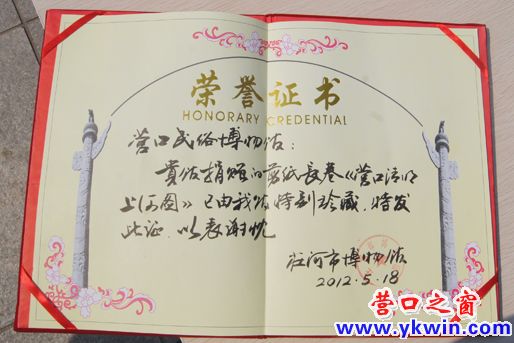 荣誉证书
HONORARY CREDENTIAL
营口民俗博物馆：
贵馆捐赠的剪纸长卷《营口清明
上河图》已由我馆特别珍藏，特发
此证，以表谢忱
庄河市博物馆
2012.5.18
营口之窗
www.ykwin.com